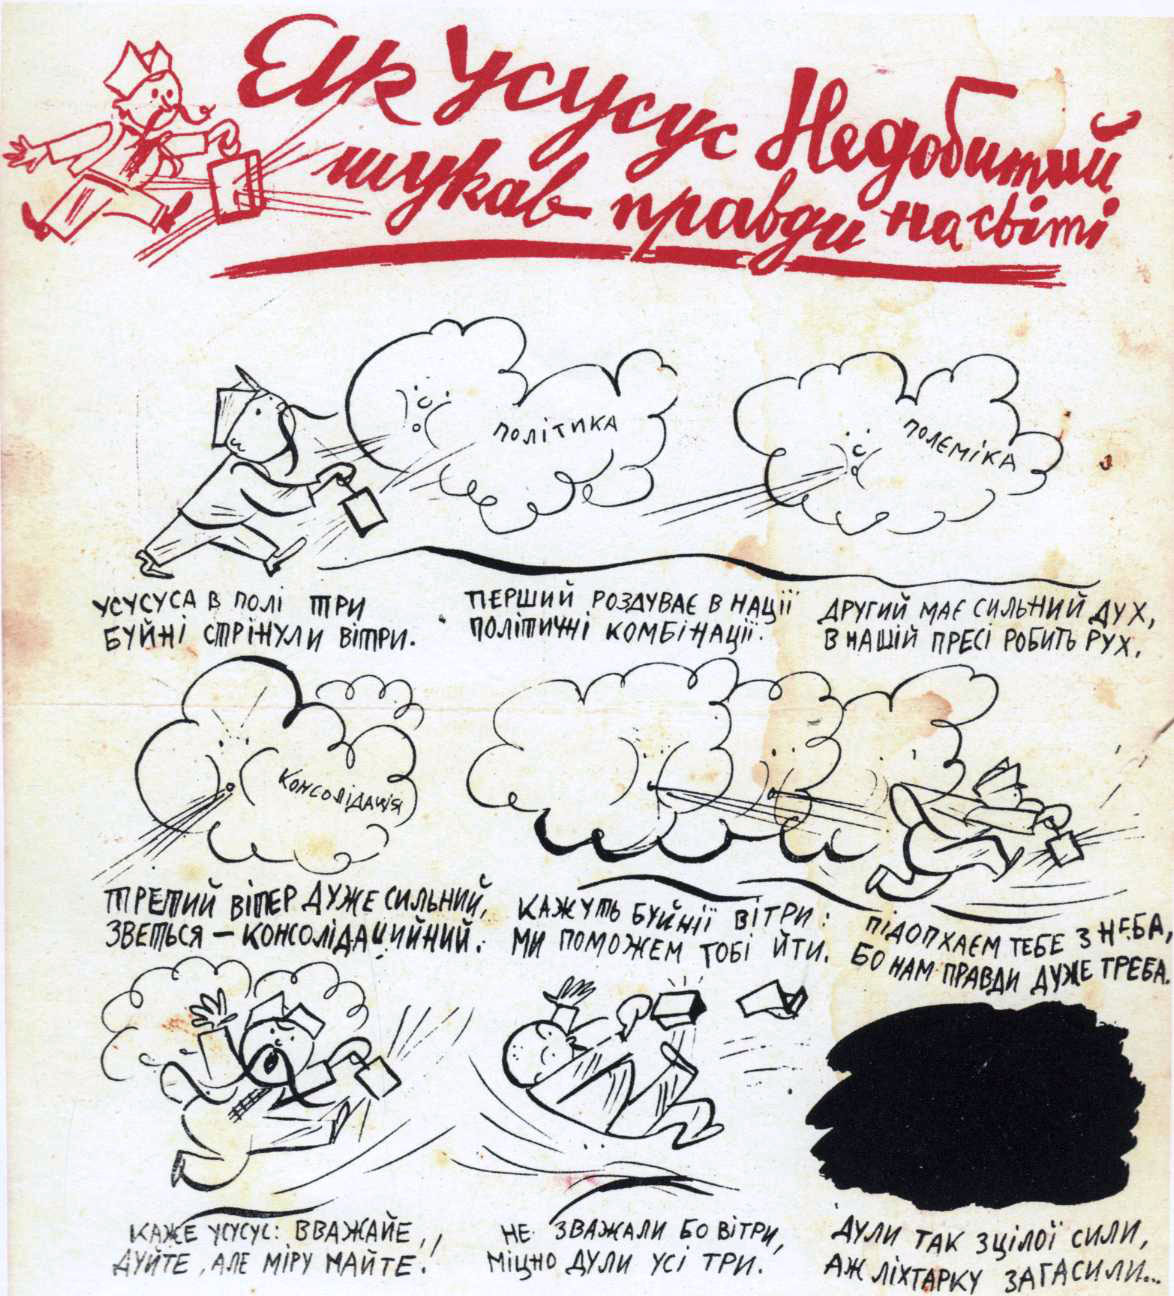 Як Усусус Недобитий
шукав правди на світі
ПОЛІТИКА
ПОЛЄМІКА
УСУСУСА В ПОЛІ ТРИ
БУЙНІ СТРІНУЛИ ВІТРИ.
ПЕРШИЙ РОЗДУВАЄ В НАЦІЇ
ПОЛІТИЧНІ КОМБІНАЦІЇ.
ДРУГИЙ МАЄ СИЛЬНИЙ ДУХ,
В НАШІЙ ПРЕСІ РОБИТЬ РУХ.
КОНСОЛІДАЦІЯ
ТРЕТИЙ ВІТЕР ДУЖЕ СИЛЬНИЙ,
ЗВЕТЬСЯ — КОНСОЛІДАЦИЙНИЙ.
КАЖУТЬ БУЙНІЇ ВІТРИ:
МИ ПОМОЖЕМ ТОБІ ЙТИ.
ПІДОПХАЄМ ТЕБЕ З НЕБА,
БО НАМ ПРАВДИ ДУЖЕ ТРЕБА.
КАЖЕ УСУСУС: ВВАЖАЙЕ,
ДУЙТЕ, АЛЕ МІРУ МАЙТЕ!
НЕ ЗВАЖАЛИ БО ВІТРИ,
МІЦНО ДУЛИ УСІ ТРИ.
ДУЛИ ТАК ЗЦІЛОЇ СИЛИ,
АЖ ЛІХТАРКУ ЗАГАСИЛИ...